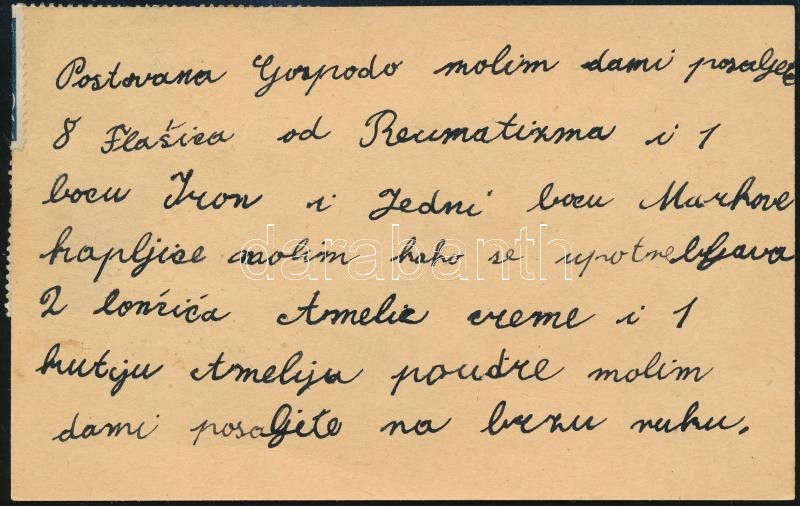 Postovana Gospodo molim dami posaljete
8 Flašica od Reumatizma i 1
bocu Iron i Jedni bocu Markove
kapljice molim kako se upotrebljava
2 lončića Amelie creme i 1
kutiju Amelija poudre molim
dami posaljete na brzu ruku.
darabanth